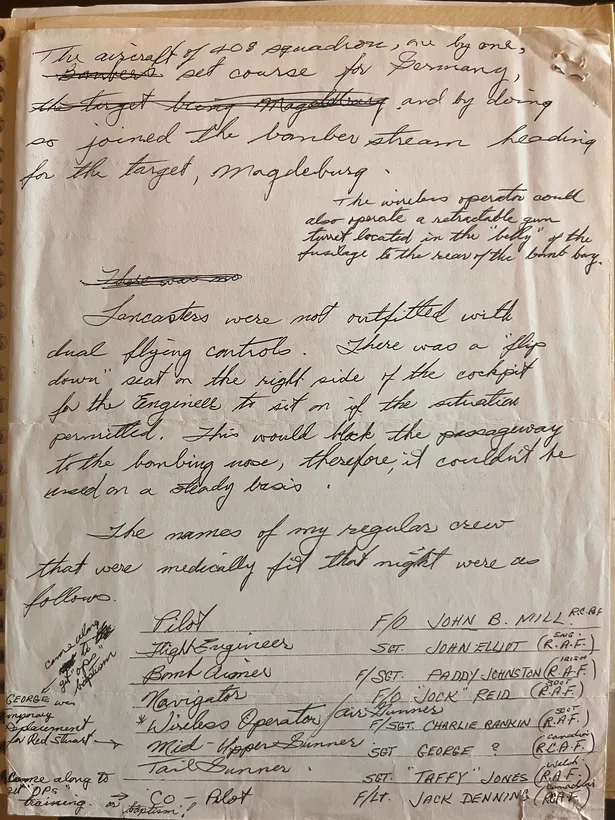 The aircraft of 408 squadron, one by one,
Bombers set course for Germany,
the target being Magdeburg and by doing
so joined the bomber stream heading
for the target, Magdeburg.
The wireless operator could
also operate a retractable gun
turret located in the "belly" of the
fusilage to the rear of the bomb bay.
There was no
Lancasters were not outfitted with
dual flying controls. There was a "flip
down" seat on the right side of the cockpit
for the Engineer to sit on if the situation
permitted. This would block the passageway
to the bombing nose, therefore, it couldn't be
used on a steady basis.
The names of my regular crew
that were medically fit that night were as
follows.
Pilot F/O JOHN B. MILL R.C.A.F
Flight Engineer SGT. JOHN ELLIOT (ENG. R.A.F.)
Bomb Aimer F/SGT. PADDY JOHNSTON (IRISH R.A.F.)
Navigator F/O "JOCK" REID (SCOT R.A.F.)
* Wireless Operator / air Gunner F/SGT. CHARLIE RANKIN (SCOT R.A.F.)
Mid-Upper Gunner SGT GEORGE ? (Canadian R.C.A.F.)
Tail Gunner. SGT. "TAFFY" JONES (Welch R.A.F.)
Co Pilot F/Lt. JACK DENNING (Canadian RCAF.)
came along
to
get "ops"
baptism
GEORGE was
mporary
replacement
for Red Stuart
Came along to
get "OPs"
training. or baptism!